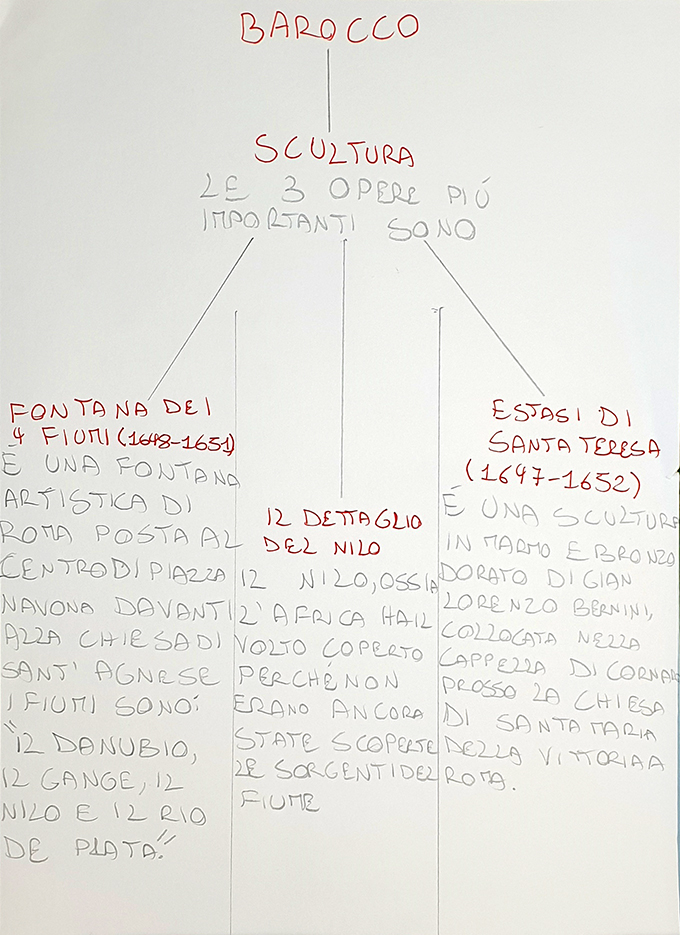 BAROCCO
SCULTURA
LE 3 OPERE PIÚ
IMPORTANTI SONO
FONTANA DEI
4 FIUMI (1648-1651)
È UNA FONTANA
ARTISTICA DI
ROMA POSTA AL
CENTRO DI PIAZZA
NAVONA DAVANTI
ALLA CHIESA DI
SANT' AGNESE
I FIUMI SONO:
"IL DANUBIO,
IL GANGE, IL
NILO E IL RIO
DE PLATA."
IL DETTAGLIO
DEL NILO
IL NILO, OSSIA
L'AFRICA HA IL
VOLTO COPERTO
PERCHÉ NON
ERANO ANCORA
STATE SCOPERTE
LE SORGENTI DEL
FIUME
ESTASI DI
SANTA TERESA
(1647-1652)
É UNA SCULTURA
IN MARMO E BRONZO
DORATO DI GIAN
LORENZO BERNINI,
COLLOCATA NELLA
CAPPELLA DI CORNARO
PROSSO LA CHIESA
DI SANTA MARIA
DELLA VITTORIA A
ROMA.